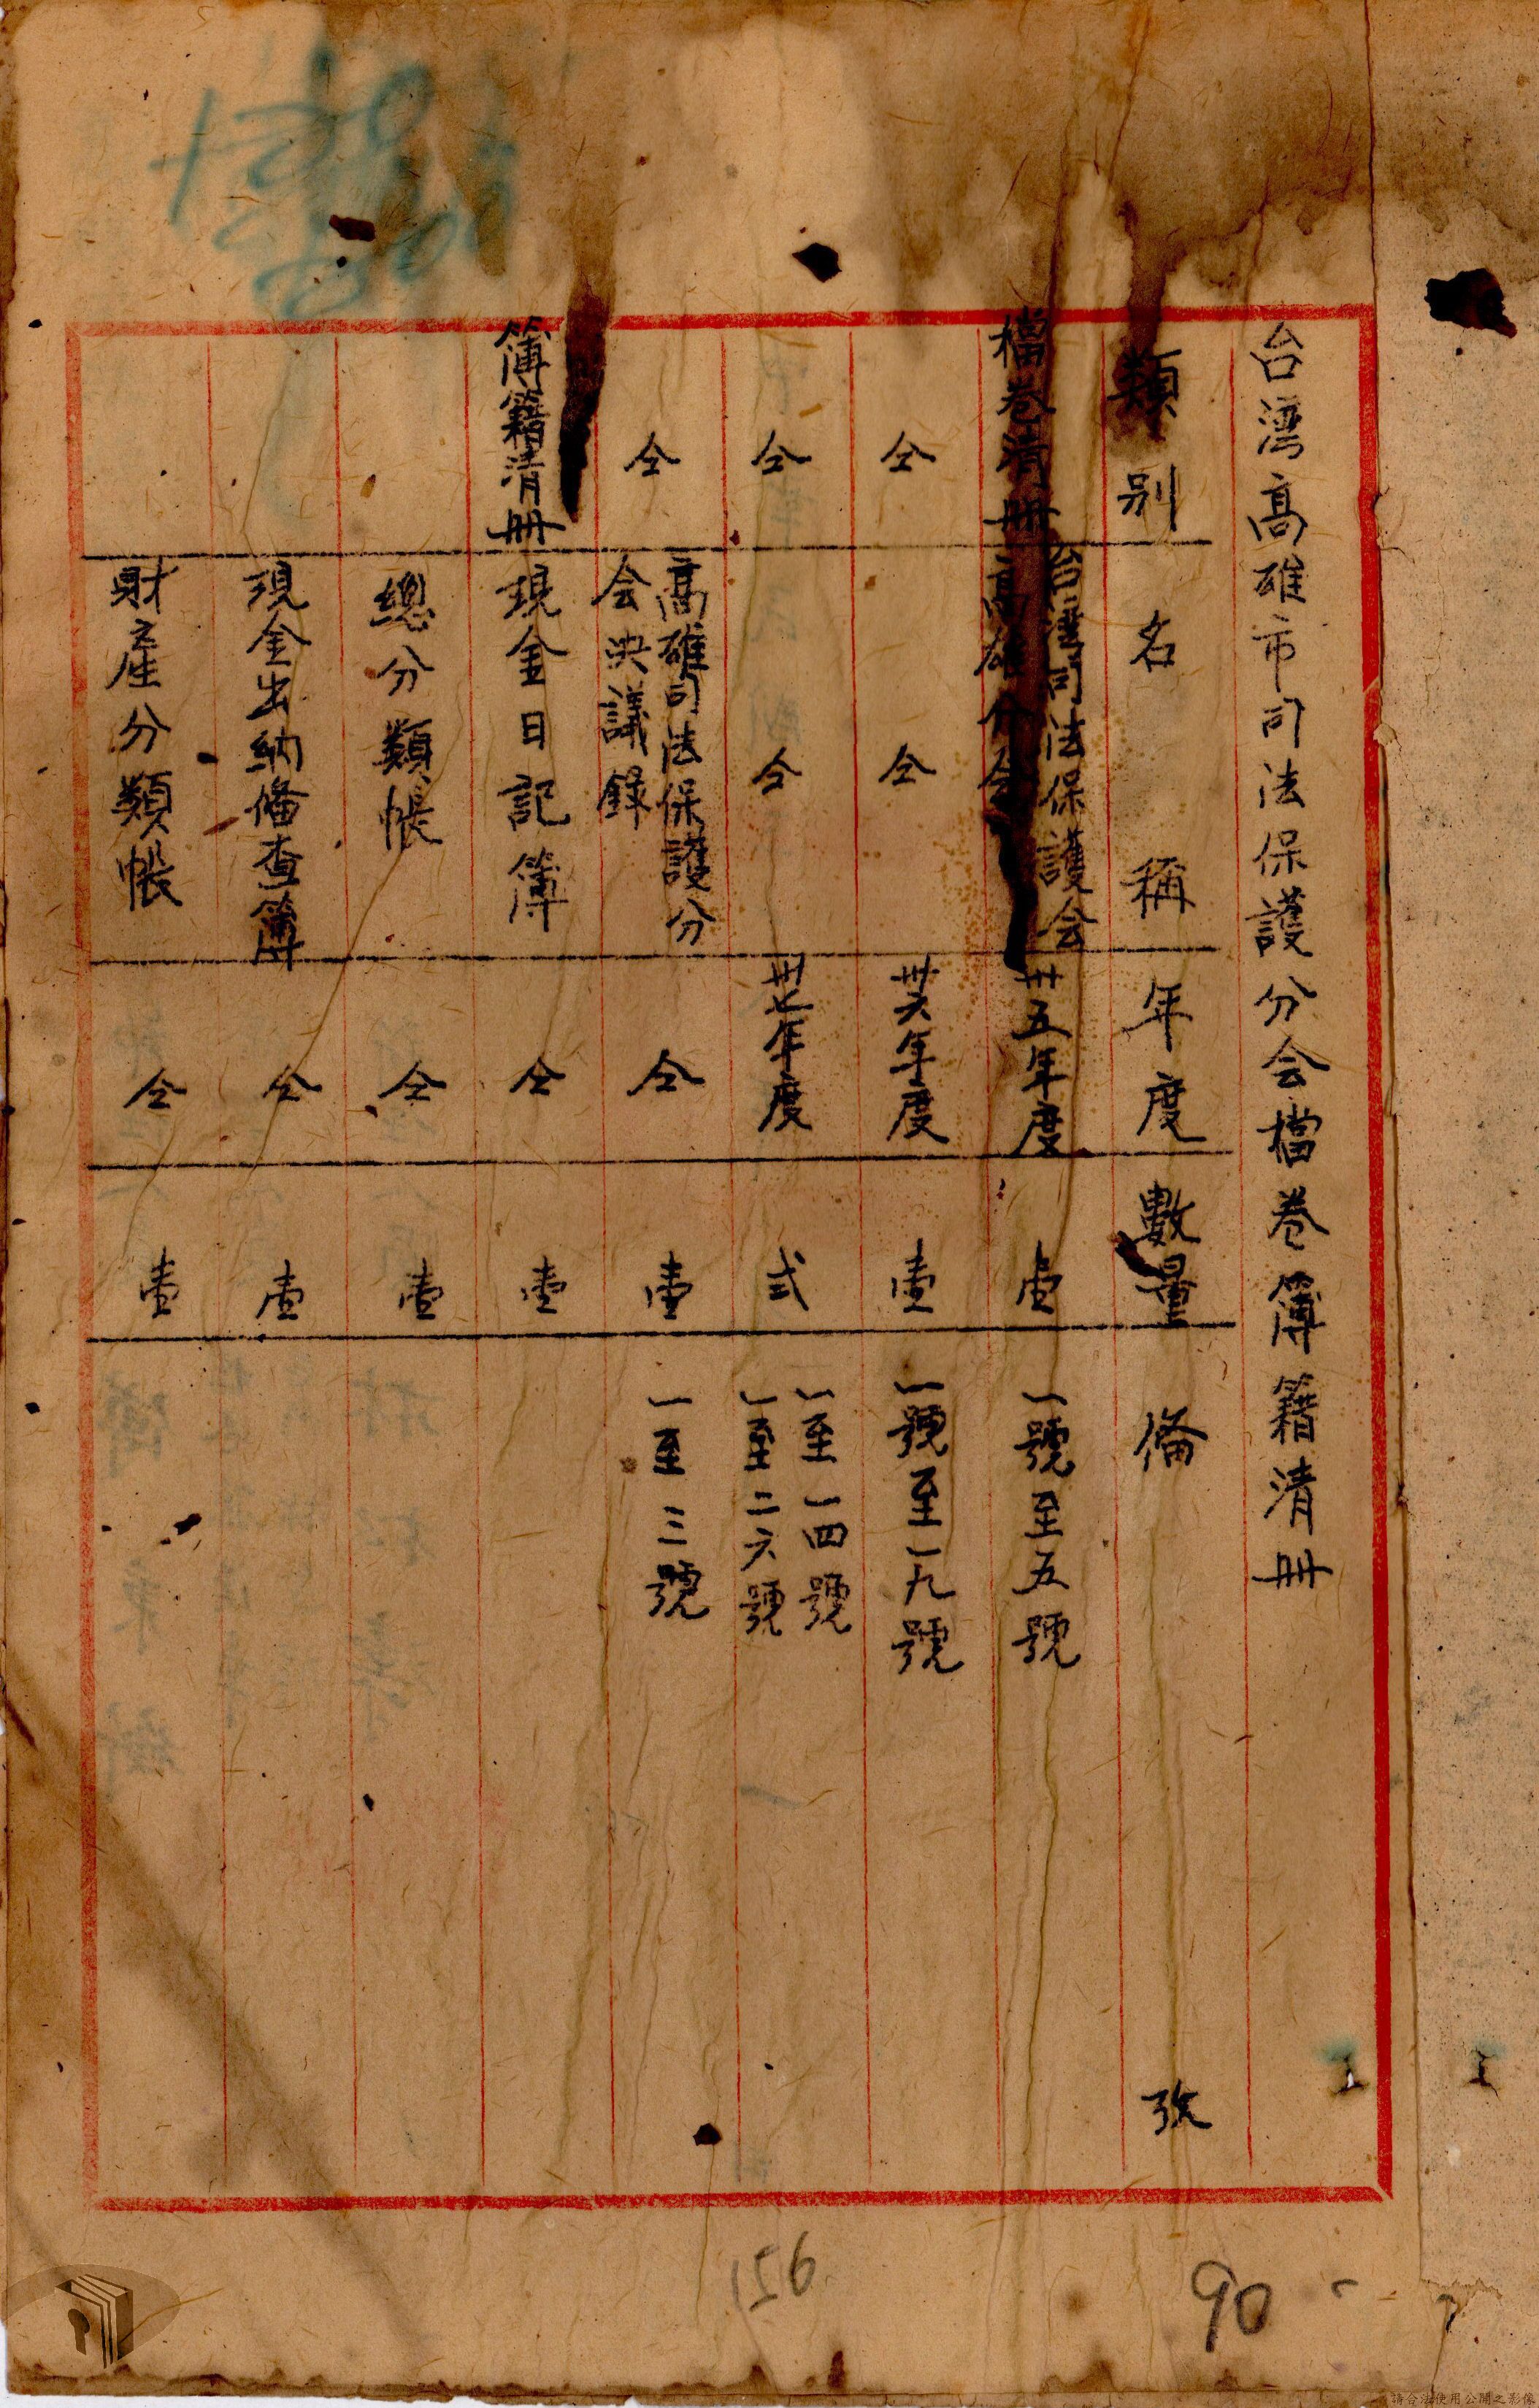 台灣高雄市司法保護分会檔卷簿籍清册
類別 名稱 年度 數量 備攷
檔卷清册 台灣司法保護会高雄分会 卅五年度 壹 一號至五號
仝 仝 卅六年度 壹 一號至一九號
仝 仝 卅七年度 弍 一至一四號 一至二六號
仝 高雄司法保護分会決議錄 仝 壹 一至三號
簿籍清册 現金日記簿 仝 壹
總分類帳 仝 壹
現金出納備查簿 仝 壹
財產分類帳 仝 壹
156
90
請合法使用公開之影像